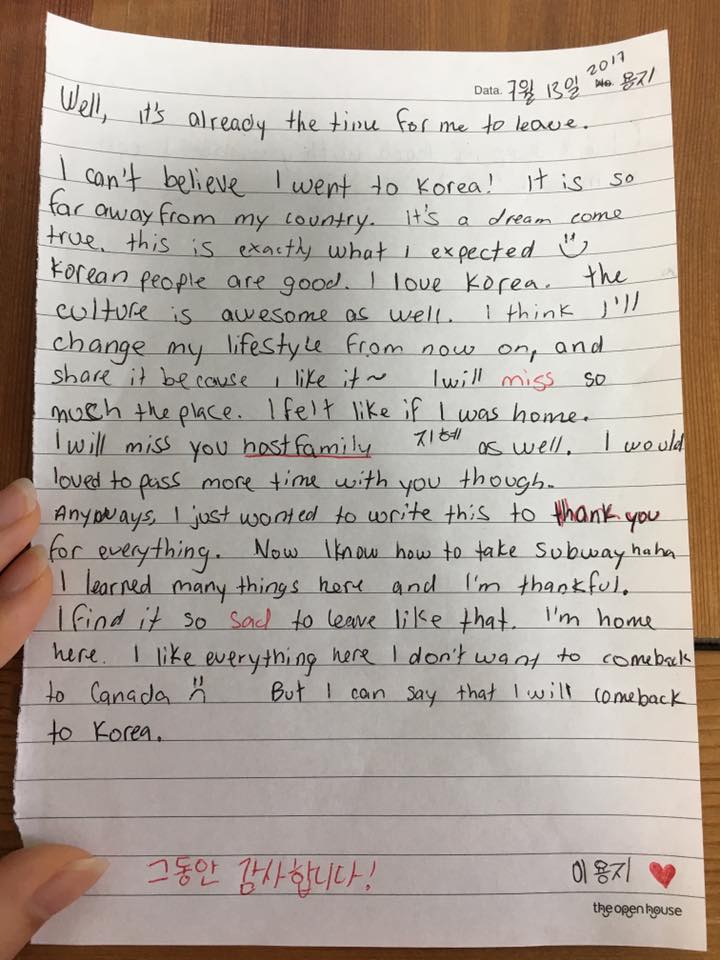 2017
Data. 7월 13일 No. 용지
Well, it's already the time for me to leave.
I can't believe I went to Korea! It is so
far away from my country. it's a dream come
true. this is exactly what I expected
Korean people are good. I love Korea. the
culture is awesome as well. I think I'll
change my lifestyle from now on, and
share it because I like it~ I will miss so
much the place. I felt like if I was home.
I will miss you hostfamily 지혜 as well. I would
loved to pass more time with you though.
Anyways, I just wanted to write this to thank you
for everything. Now I know how to take subway haha
I learned many things here and I'm thankful.
I find it so sad to leave like that. I'm home
here. I like everything here I don't want to comeback
to Canada But I can say that I will comeback
to Korea.
그동안 감사합니다! 이용지 ♥
the open house